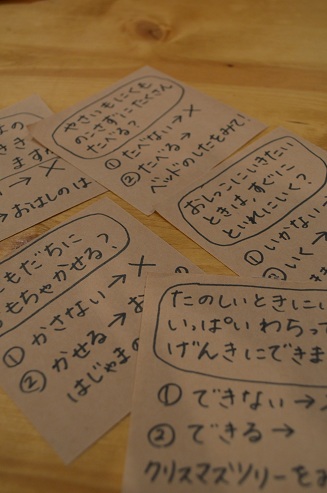 やさいもにくも
のこさずにたくさん
たべる?
①たべない→×
②たべる→
ベッドのしたをみて!
よの
きき
ます
→×
→おはしのは
おしっこにいきたい
ときは、すぐに
といれにいく?
①いかない→
②いく→
もだちに
もちゃかせる?
①かさない→×
②かせる→お
はじゃまの
の
たのしいときにい
いっぱいわらっ
げんきにできま
①できない→
②できる→
クリスマスツリーをみ